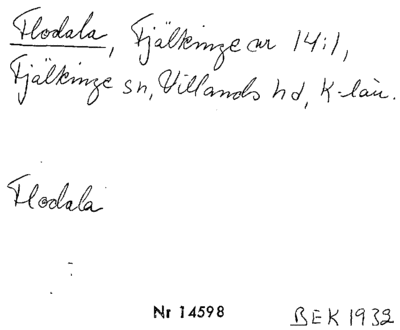 Flodala, Fjälkinge nr 14:1,
Fjälkinge sn, Villands hd, K-län.
Flodala
Nr 14598
BEK 1932